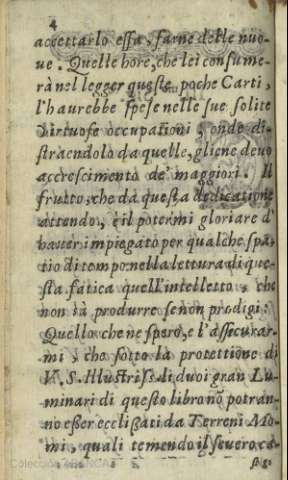 4
accettarlo essa, farne delle nuo-
ue. Quelle hore, che lei consume-
rà nel legger queste poche Carti,
l'haurebbe spese nelle sue solite
virtuose occupationi, onde di-
straendolo da quelle, gliene deuo
accrescimento de' maggiori. Il
frutto, che da questa dedicatione
attendo, è il potermi gloriare d'
hauer impiegato per qualche spa-
tio di tempo nella lettura di que-
sta fatica quell'intelletto, che
non sà produrre se non prodigi.
Quello che ne spero, e l'assecurar-
mi, che sotto la protettione di
V. S. Illustriss. di duoi gran Lu-
minari di questo libro nõ potran-
no esser ecclissati da Terreni Mo-
mi, quali temendo il seuero ca-
sti-